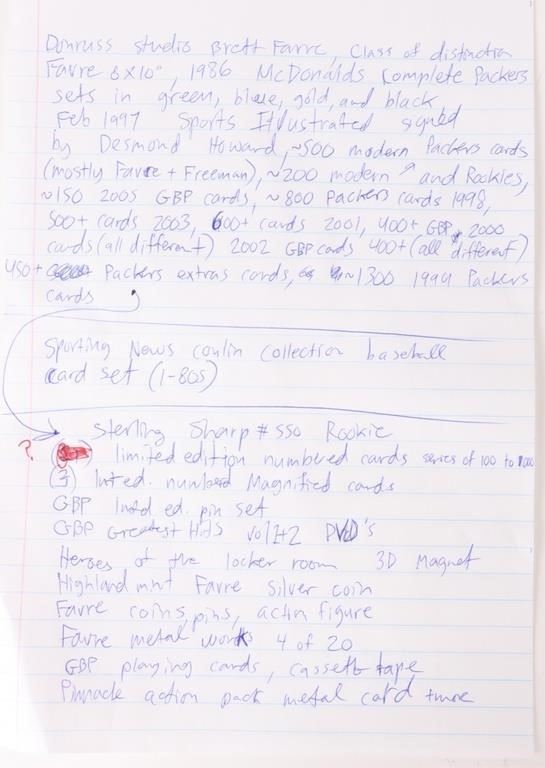 Donruss Studio Brett Favre, Class of distinction
Favre 8x10", 1986 McDonalds Complete Packers
sets in green, blue, gold, and black
Feb 1997 Sports Illustrated signed
by Desmond Howard, ~500 modern Packers cards
(mostly Favre + Freeman), ~200 modern and Rookies,
~150 2005 GBP cards, ~800 Packers cards 1998,
500+ cards 2003, 600+ cards 2001, 400+ GBP 2000
cards (all different) 2002 GBP cards 400+ (all different)
450+ Packers extras cards, ~1300 1994 Packers
cards
Sporting News conlin collection baseball
card set (1-80s)
Sterling Sharp #550 Rookie
? limited edition numbered cards series of 100 to 1000
numbered Magnified cards
GBP limtd ed. pin set
GBP Greatest Hits vol 1+2 DVD's
Heroes of the locker room 3D Magnet
Highland mint Favre silver coin
Favre coins, pins, action figure
Favre metal works 4 of 20
GBP playing cards, cassette tape
Pinnacle action pack metal card +more